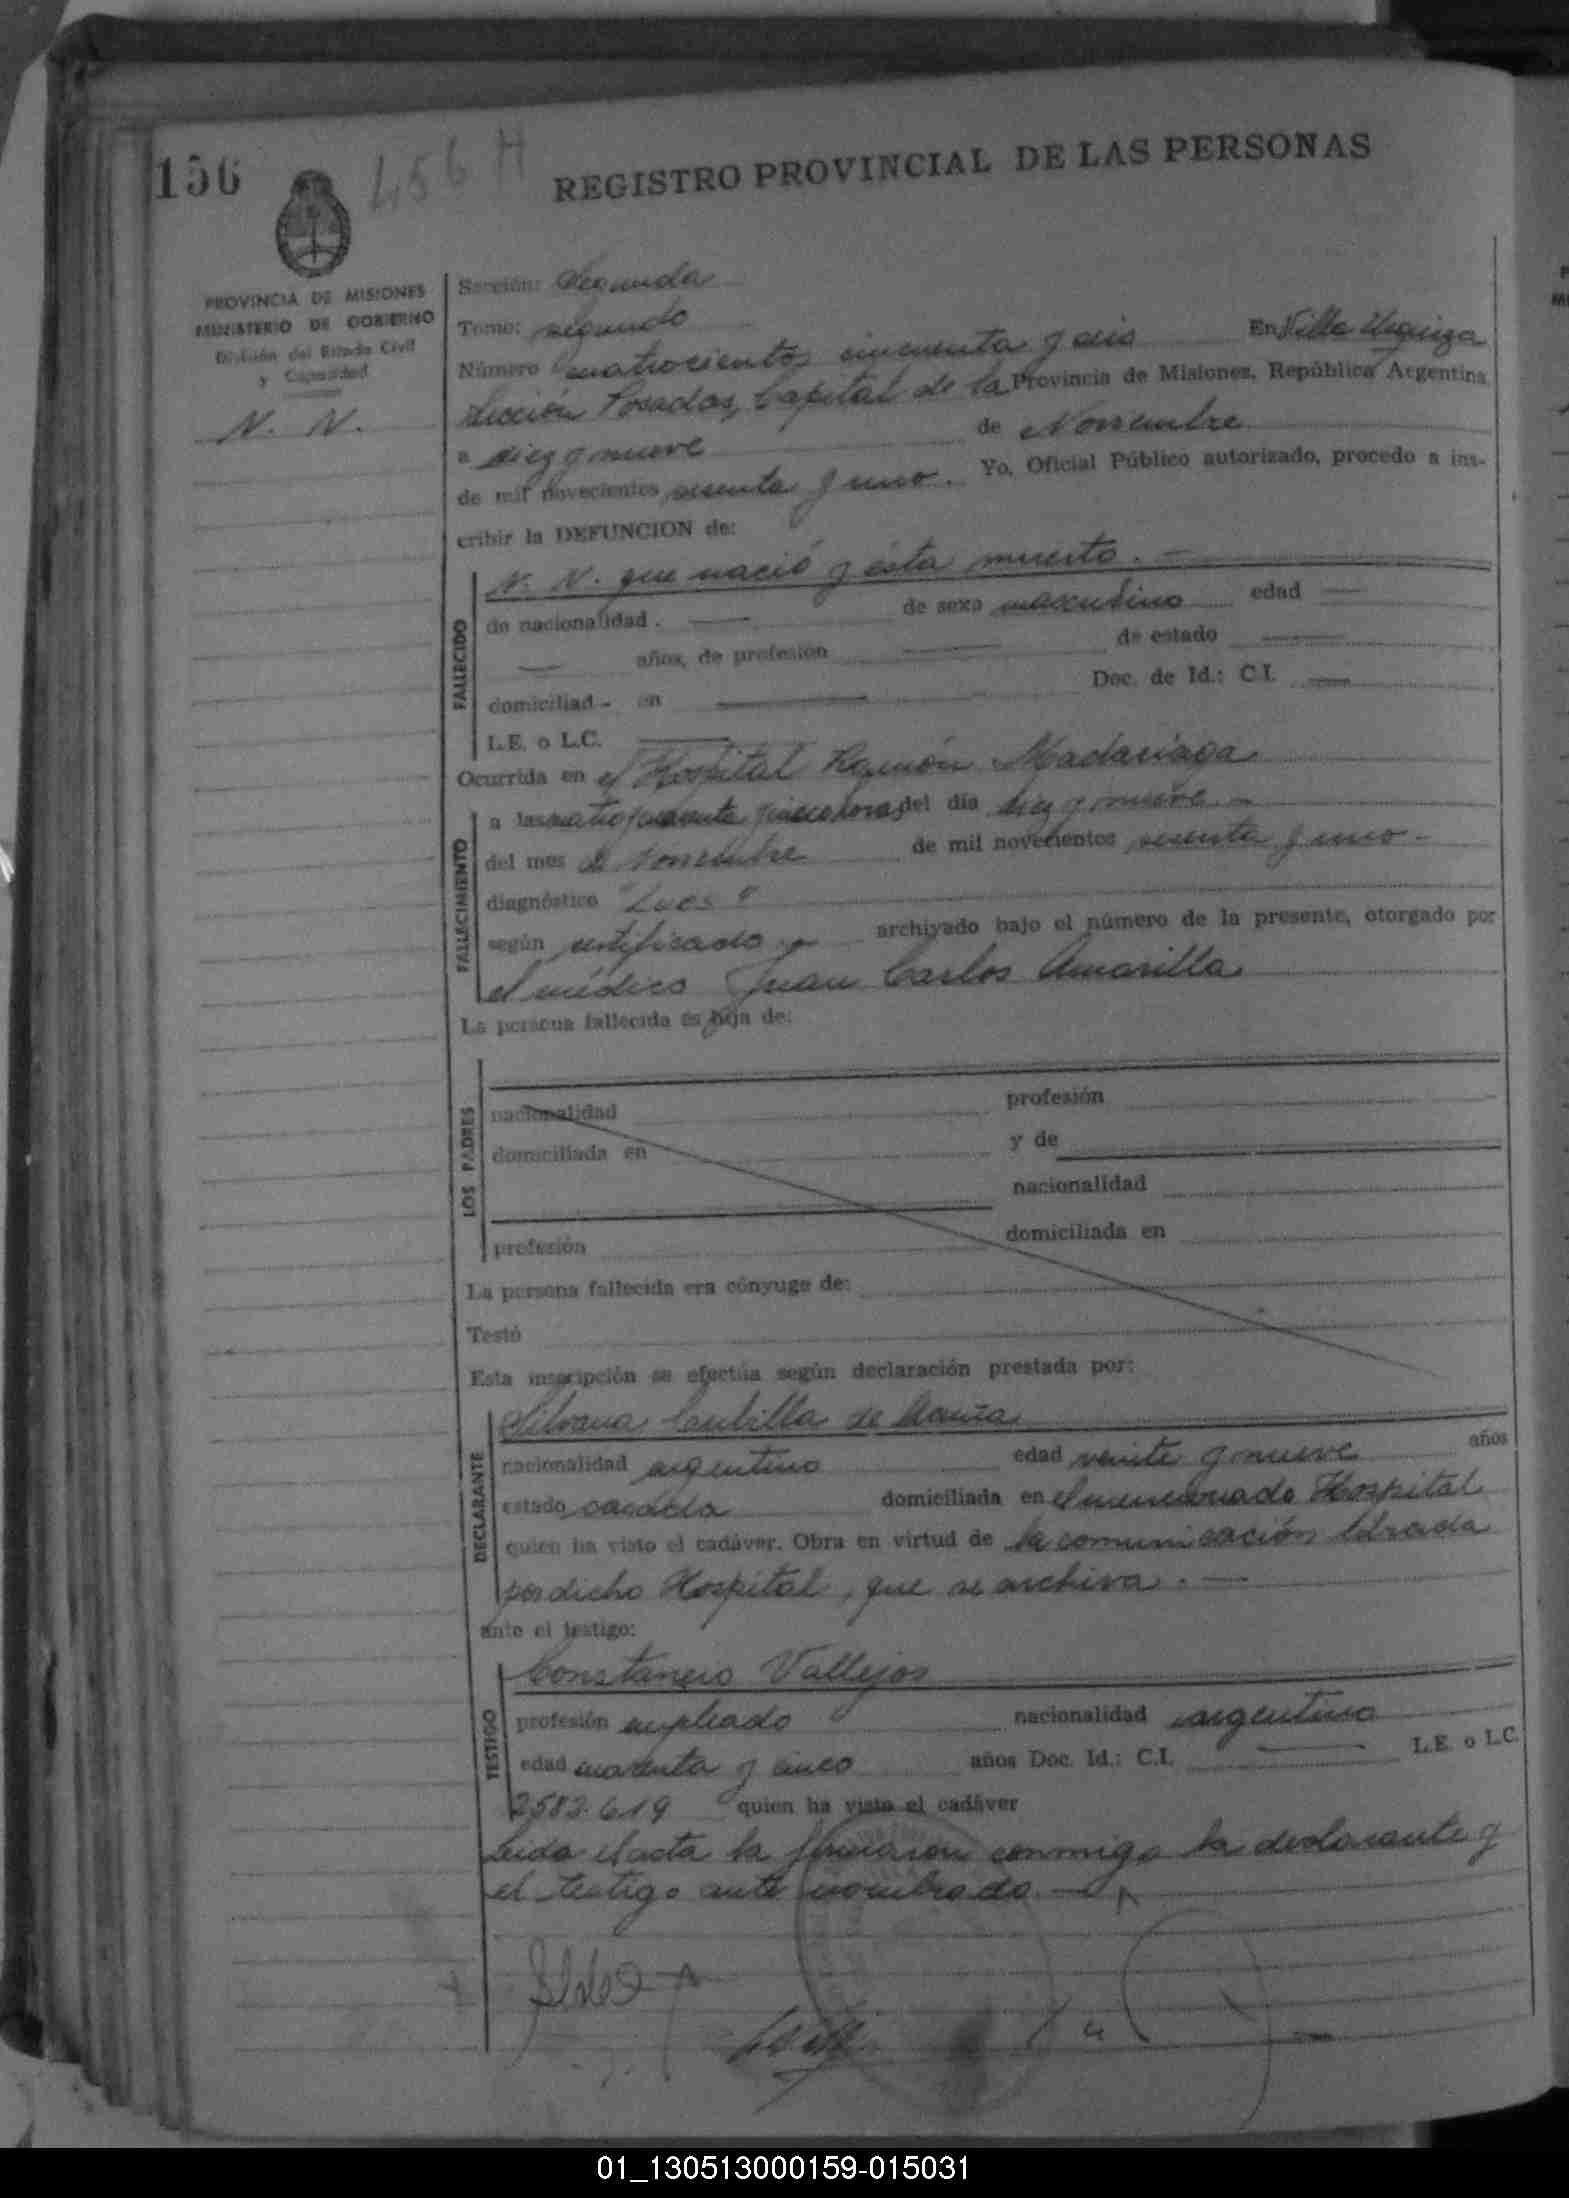 156
456 H
REGISTRO PROVINCIAL DE LAS PERSONAS
PROVINCIA DE MISIONES
MINISTERIO DE GOBIERNO
División del Estado Civil
y Capacidad
N. N.
Sección: Segunda
Tomo: segundo
Número cuatrocientos cincuenta y seis En Villa Urquiza
Sección Posadas, Capital de la Provincia de Misiones, República Argentina,
a diez y nueve de Noviembre
de mil novecientos sesenta y uno. Yo, Oficial Público autorizado, procedo a ins-
cribir la DEFUNCION de:
N. N. que nació y ésta muerto. —
FALLECIDO
de nacionalidad . — de sexo masculino edad —
— años, de profesión — de estado —
domiciliad - en — Doc. de Id.: C.I. —
L.E. o L.C. —
Ocurrida en el Hospital Ramón Madariaga
FALLECIMIENTO
a las cuatro y cuarenta y cinco horas del día diez y nueve —
del mes de Noviembre de mil novecientos sesenta y uno -
diagnóstico "Lues"
según certificado archivado bajo el número de la presente, otorgado por
el médico Juan Carlos Amarilla
La persona fallecida es hija de:
LOS PADRES
nacionalidad profesión
domiciliada en y de
nacionalidad
profesión domiciliada en
La persona fallecida era cónyuge de:
Testó
Esta inscripción se efectúa según declaración prestada por:
DECLARANTE
Silvana Cantilla de
nacionalidad argentina edad veinte y nueve años
estado casada domiciliada en el mencionado Hospital
quien ha visto el cadáver. Obra en virtud de la comunicación librada
por dicho Hospital, que se archiva. —
ante el testigo:
TESTIGO
Constancio Vallejos
profesión empleado nacionalidad argentino
edad cuarenta y cinco años Doc. Id.: C.I. — L.E. o L.C.
2582.619 quien ha visto el cadáver
Leída el acta la firmaron conmigo la declarante y
el testigo ante nombrado. —
01_130513000159-015031